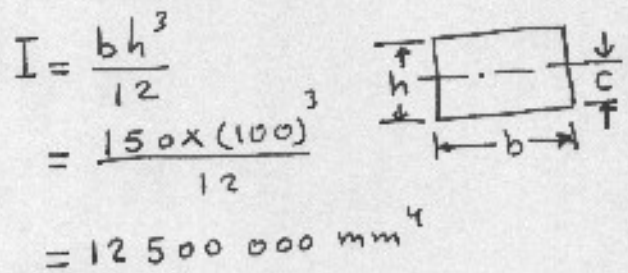 I = bh³/12
= 150x(100)³/12
= 12 500 000 mm⁴
h
c
b